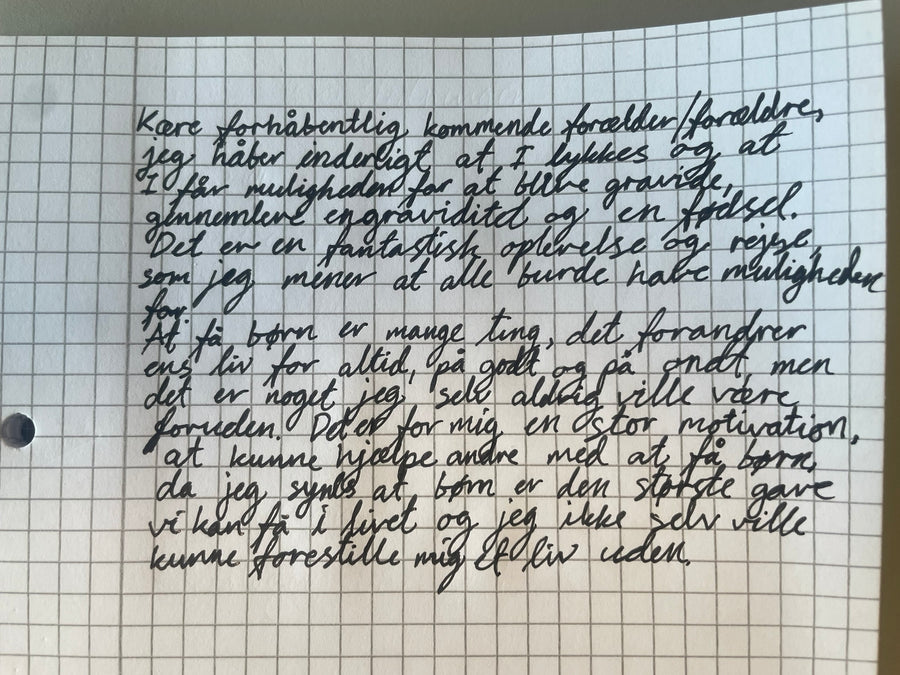 Kære forhåbentlig kommende forælder/forældre,
jeg håber inderligt at I lykkes og at
I får muligheden for at blive gravide,
gennemleve en graviditet og en fødsel.
Det er en fantastisk oplevelse og rejse,
som jeg mener at alle burde have muligheden
for.
At få børn er mange ting, det forandrer
ens liv for altid, på godt og på ondt, men
det er noget jeg selv aldrig ville være
foruden. Det er for mig en stor motivation,
at kunne hjælpe andre med at få børn,
da jeg synes at børn er den største gave
vi kan få i livet og jeg ikke selv ville
kunne forestille mig et liv uden.